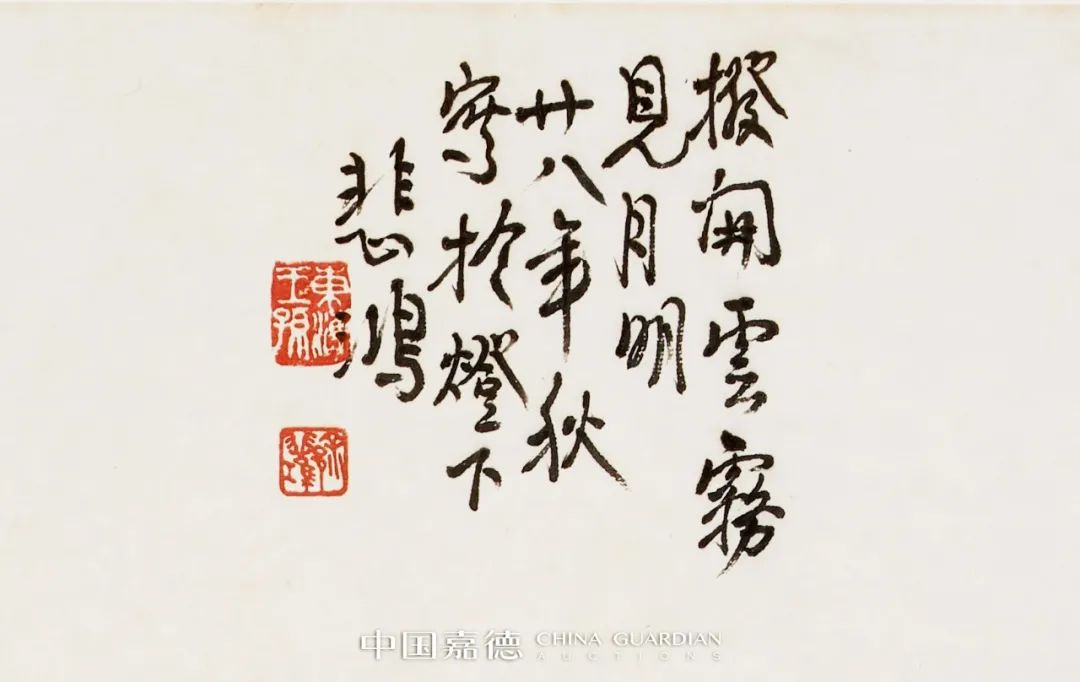 撥開雲霧
見月明
廿八年秋
寫於燈下
悲鴻
東海王孫
徐悲鴻
中国嘉德 CHINA GUARDIAN
AUCTIONS